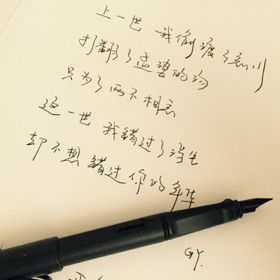 上一世 我偷渡了忘川
打翻了孟婆的汤
只为了两不相忘
这一世 我错过了诗生
却不想错过你的年华
GY.